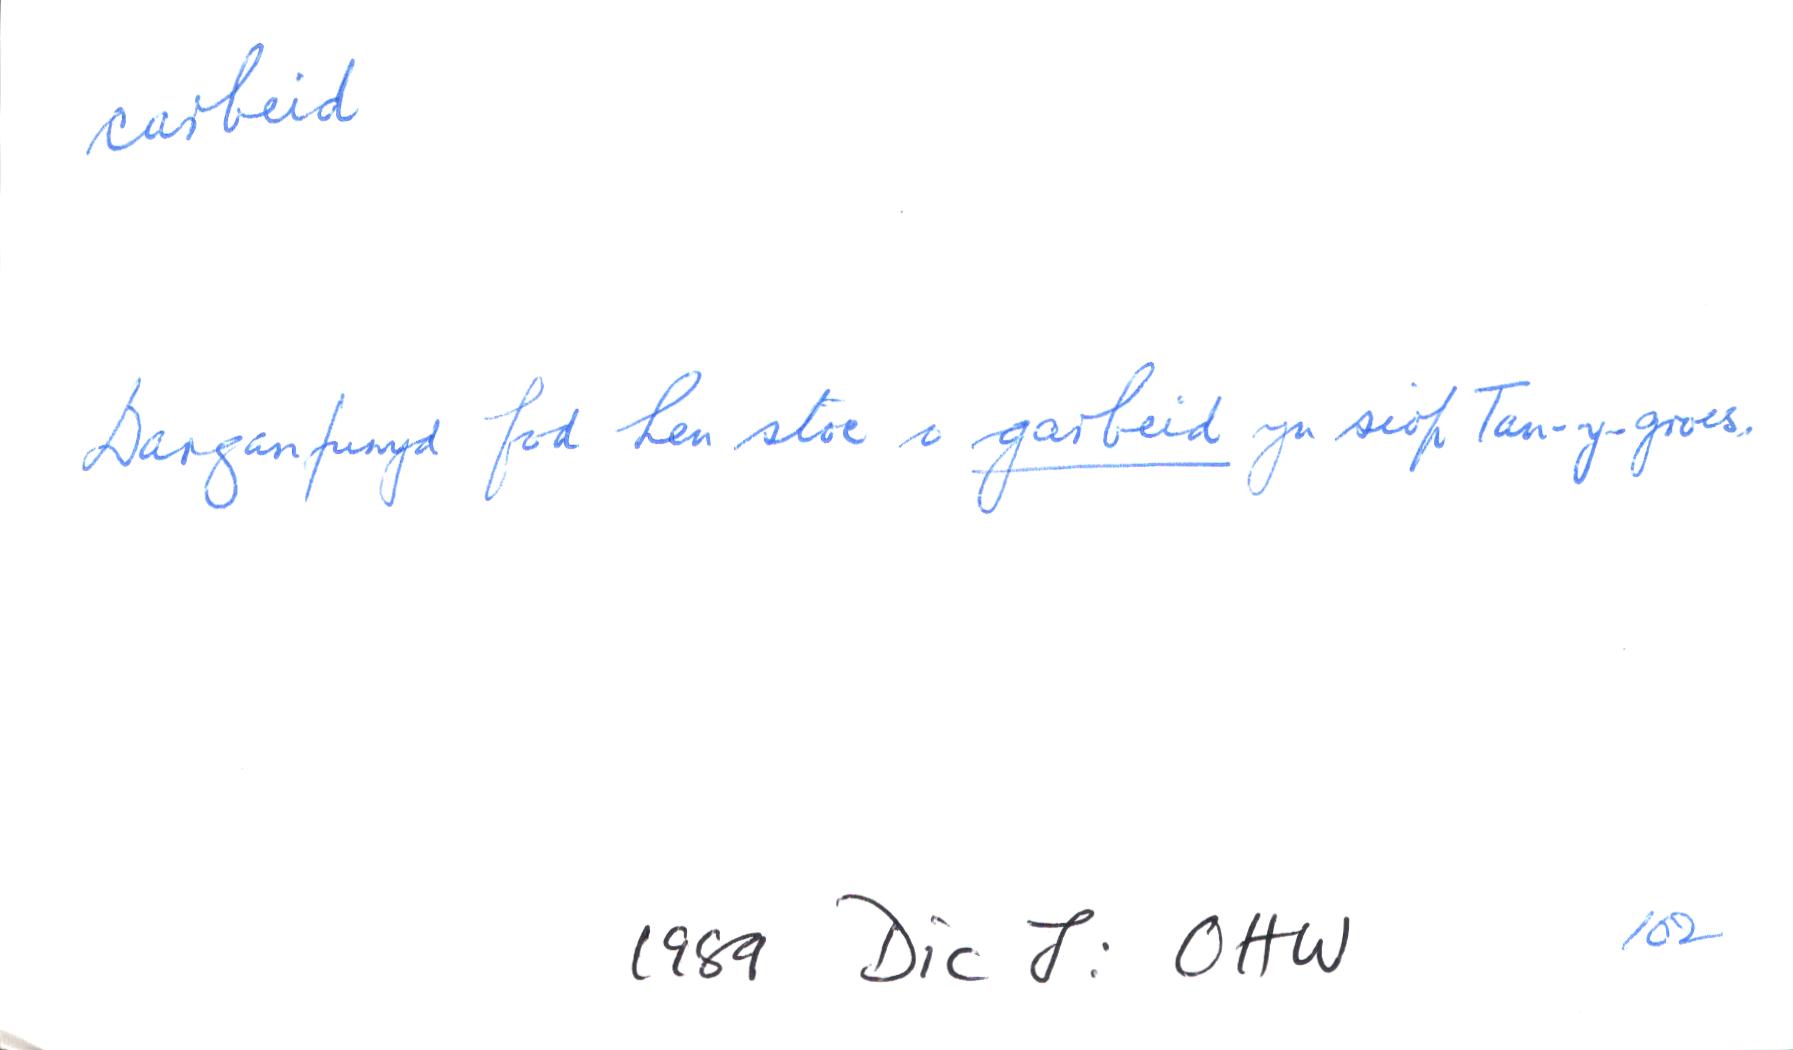 carbeid
Darganfuwyd fod hen stoc o garbeid yn siop Tan-y-groes.
1989 Dic J: OHW 102